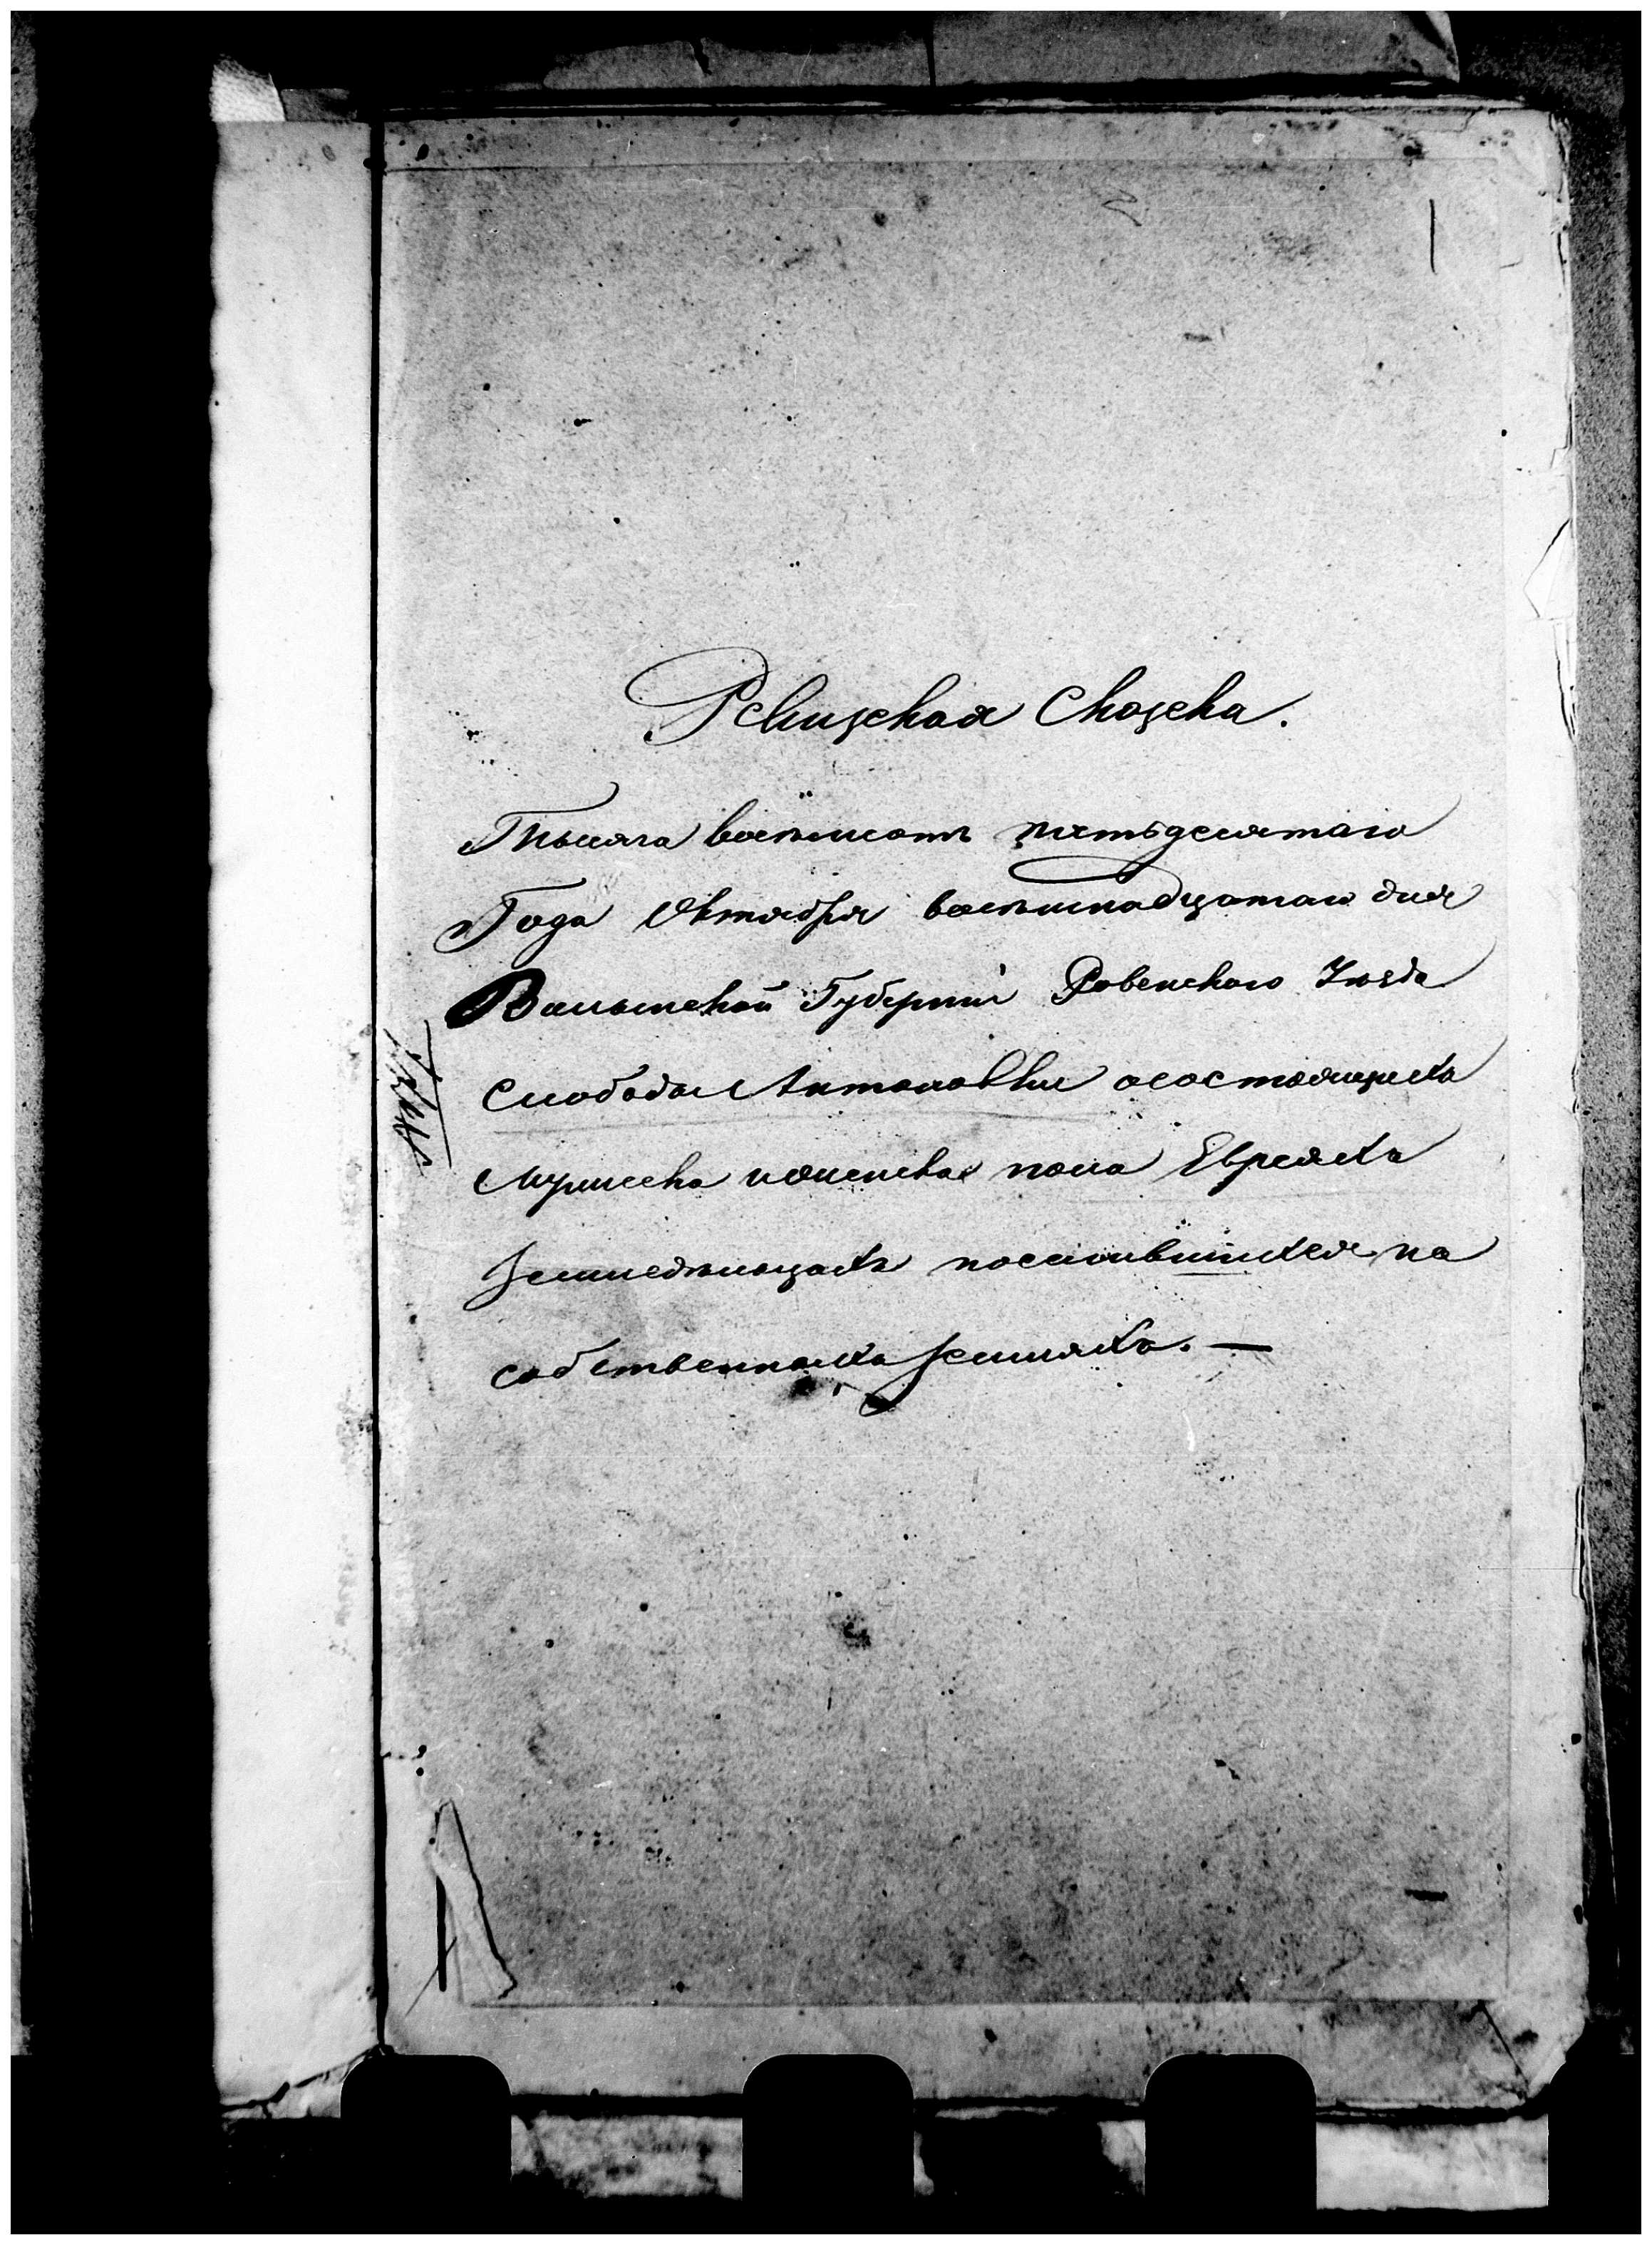 Ревизская Сказка.
Тысяча восемьсотъ пятьдесятаго
Года Октября восемьнадцатаго дня
Волынской Губернии Ровенского Уезда
Слободы Антоновки осостоящихъ
мужеска иженска пола Евреяхъ
Земледельцахъ поселившихся на
собственныхъ земляхъ. —